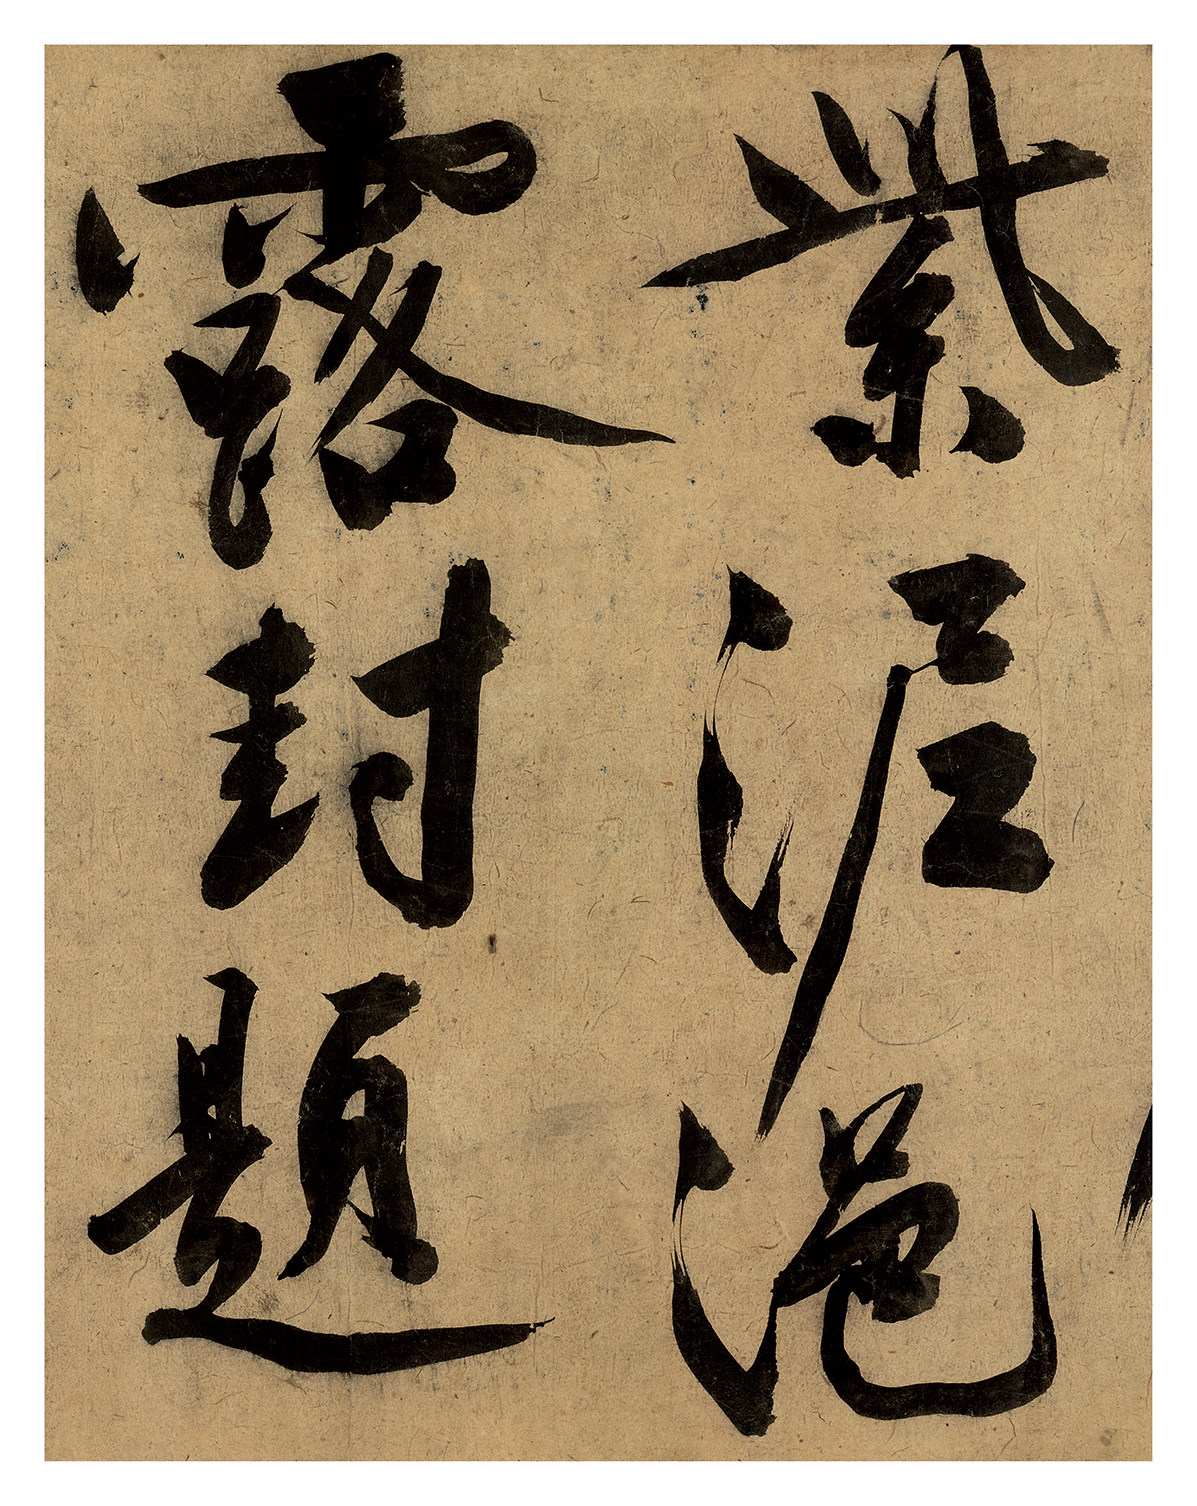 紫泥浥
露封題